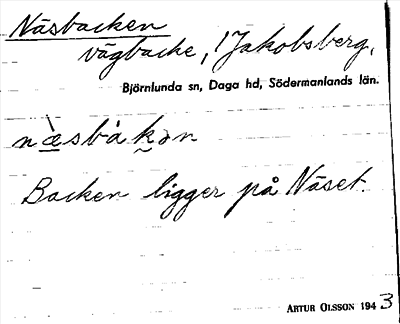 Näsbacken
vägbacke, i Jakobsberg,
Björnlunda sn, Daga hd, Södermanlands län.
næ̀sbàk̬ən
Backen ligger på Näset.
ARTUR OLSSON 1943